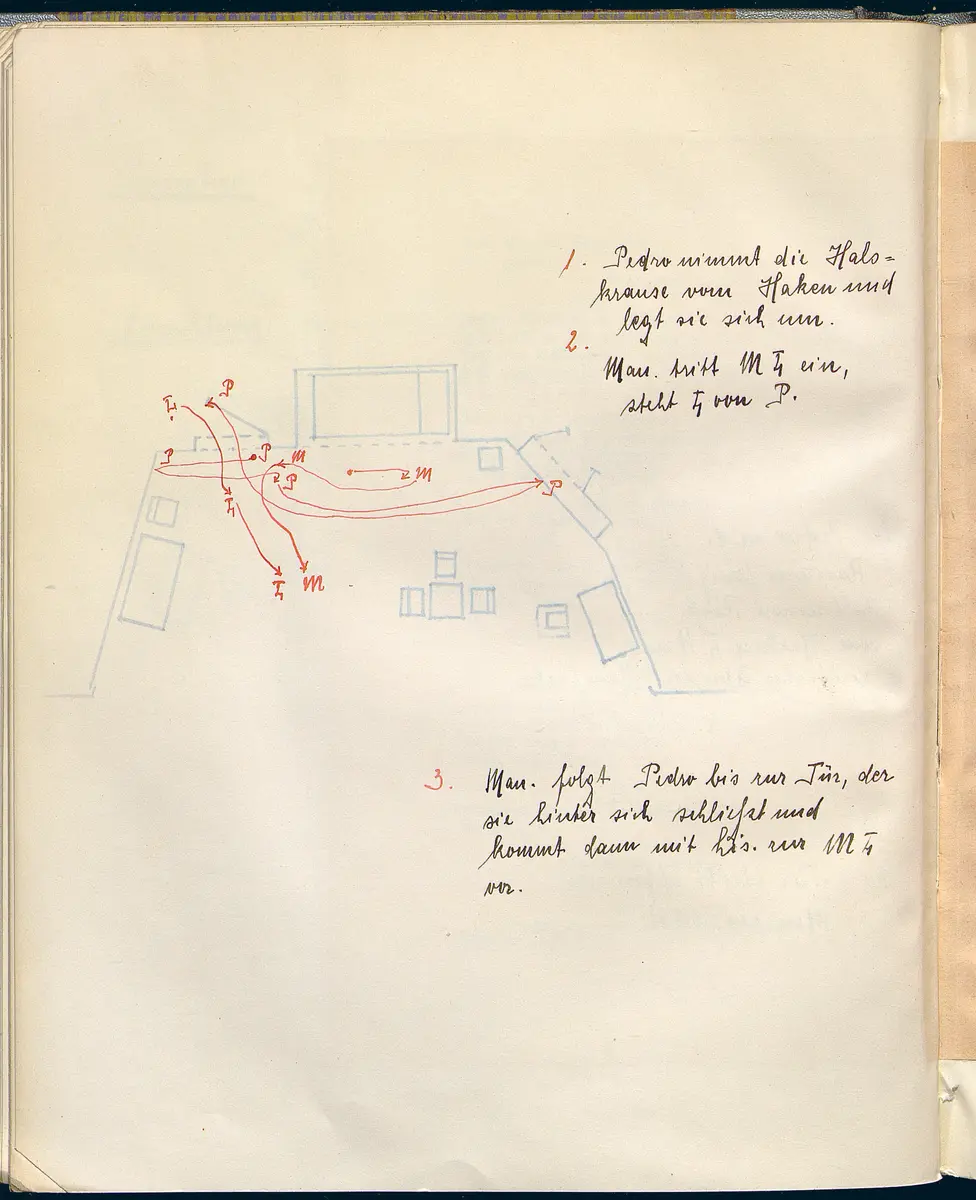 1. Pedro nimmt die Hals=
krause vom Haken und
legt sie sich um.
2.
Man. tritt M L ein,
steht L von P.
P
L.
P
P
M
P
M
P
L
L
M
3. Man. folgt Pedro bis zur Tür, der
sie hinter sich schließt und
kommt dann mit his. zur M L
vor.